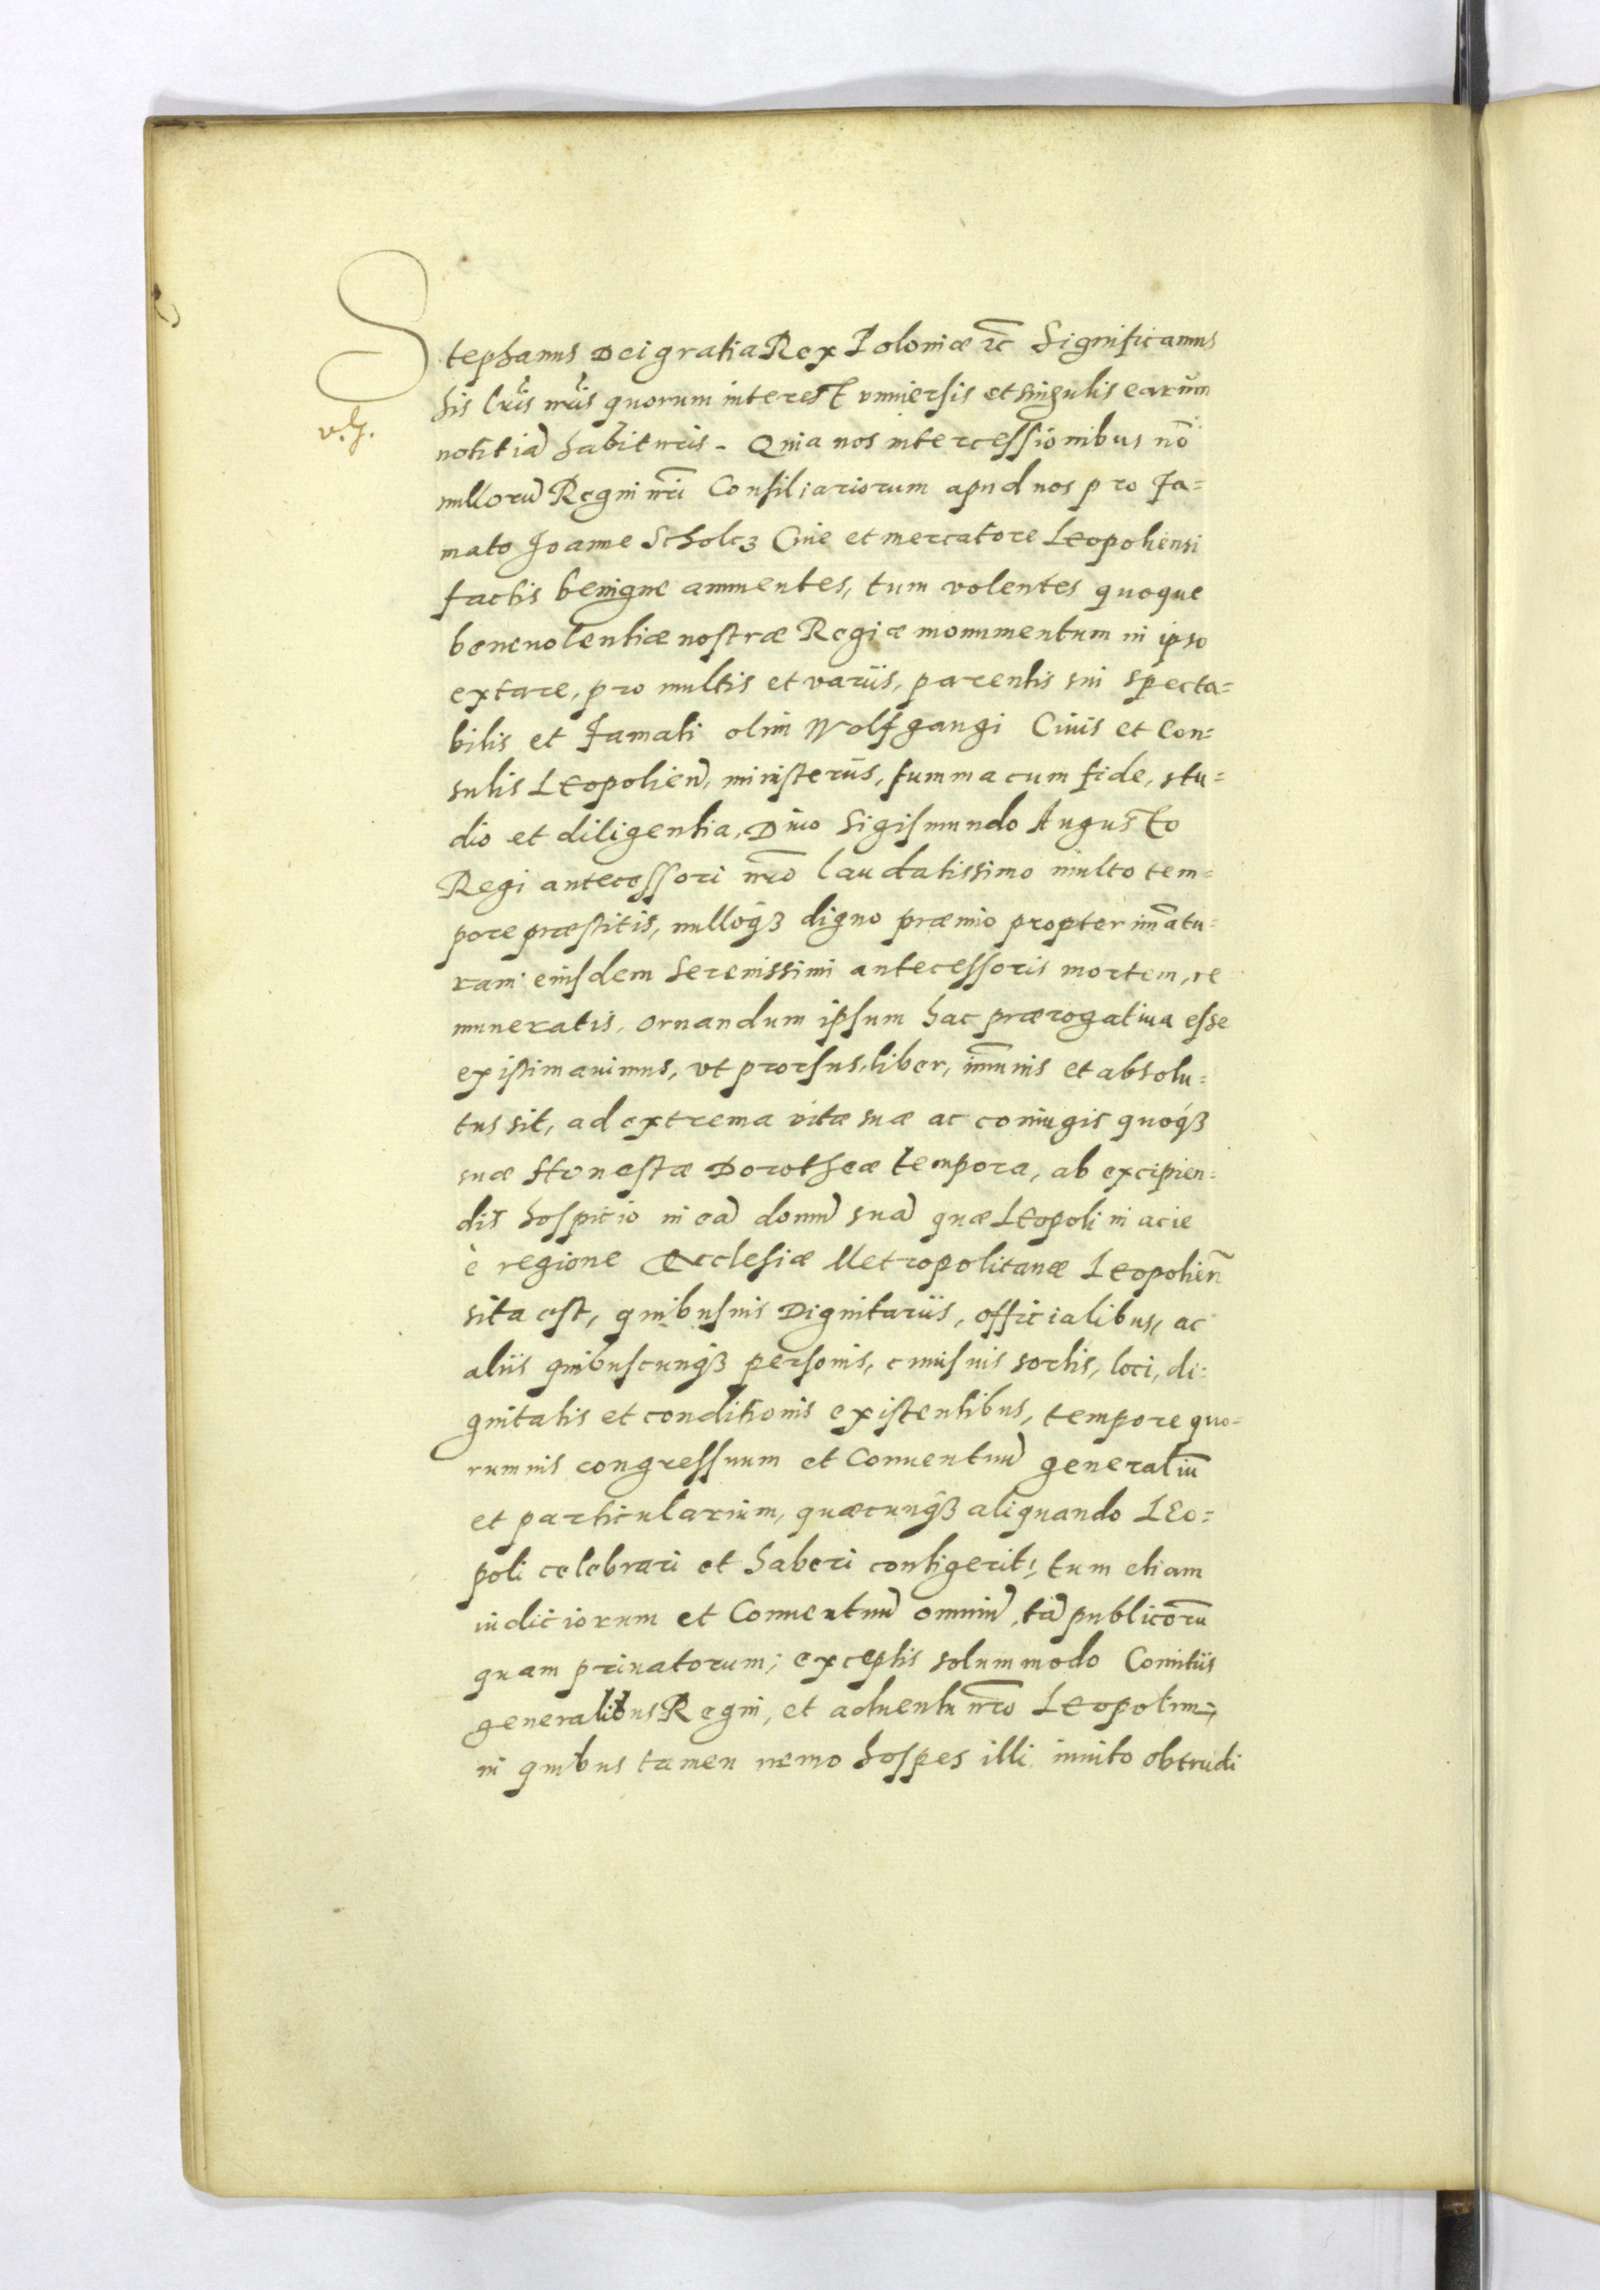 Stephanus Dei gratia Rex Poloniæ etc Significamus
his lr̃is nr̃is quorum interest vniuersis et singulis earum
v. g.
notitiã habituris. Quia nos intercessionibus nõ
nullorũ Regni nr̃i Consiliariorum apud nos pro fa=
mato Joanne Scholcz Ciue et mercatore Leopoliensi
factis benigne annuentes, tum volentes quoque
beneuolentiæ nostræ Regiæ monumentum in ipso
extare, pro multis et varijs, parentis sui specta=
bilis et famati olim Wolfgangi Ciuis et Con=
sulis Leopolieñ, ministerijs, summa cum fide, stu=
dio et diligentia, Diuo Sigismundo Augusto
Regi antecessori nr̃o laudatissimo multo tem=
pore præstitis, nulloq3 digno præmio propter im̃atu=
ram eiusdem Serenissimi antecessoris mortem, re
muneratis, ornandum ipsum hac prærogatiua esse
existimauimus, vt prorsus, liber, im̃unis et absolu=
tus sit, ad extrema vitæ suæ ac coniugis quoq3
suæ Honestæ Dorotheæ tempora, ab excipien=
dis hospitio in eã domũ suã quæ Leopoli in acie
è regione Ecclesiæ Metropolitanæ Leopolieñ
sita est, quibusuis Dignitarijs, officialibus, ac
alijs quibuscunq3 personis, cuiusuis sortis, loci, di=
gnitatis et conditionis existentibus, tempore quo=
rumuis congressuum et Conuentuũ generaliũ
et particularium, quæcunq3 aliquando Leo=
poli celebrari et haberi contigerit; tum etiam
iudiciorum et Conuentuũ omniũ, tã publicorũ
quam priuatorum; exceptis solummodo Comitijs
generalibus Regni, et aduentu nr̃o Leopolim;
in quibus tamen nemo hospes illi inuito obtrudi